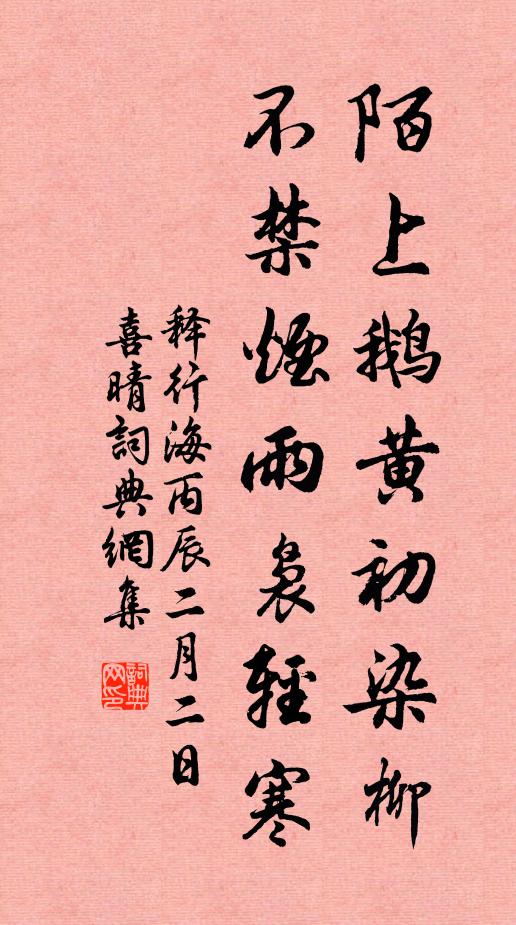 陌上鹅黄初染柳
不禁煙雨裊輕寒
释行海丙辰二月二日
喜晴詞典網集
詞典
网印